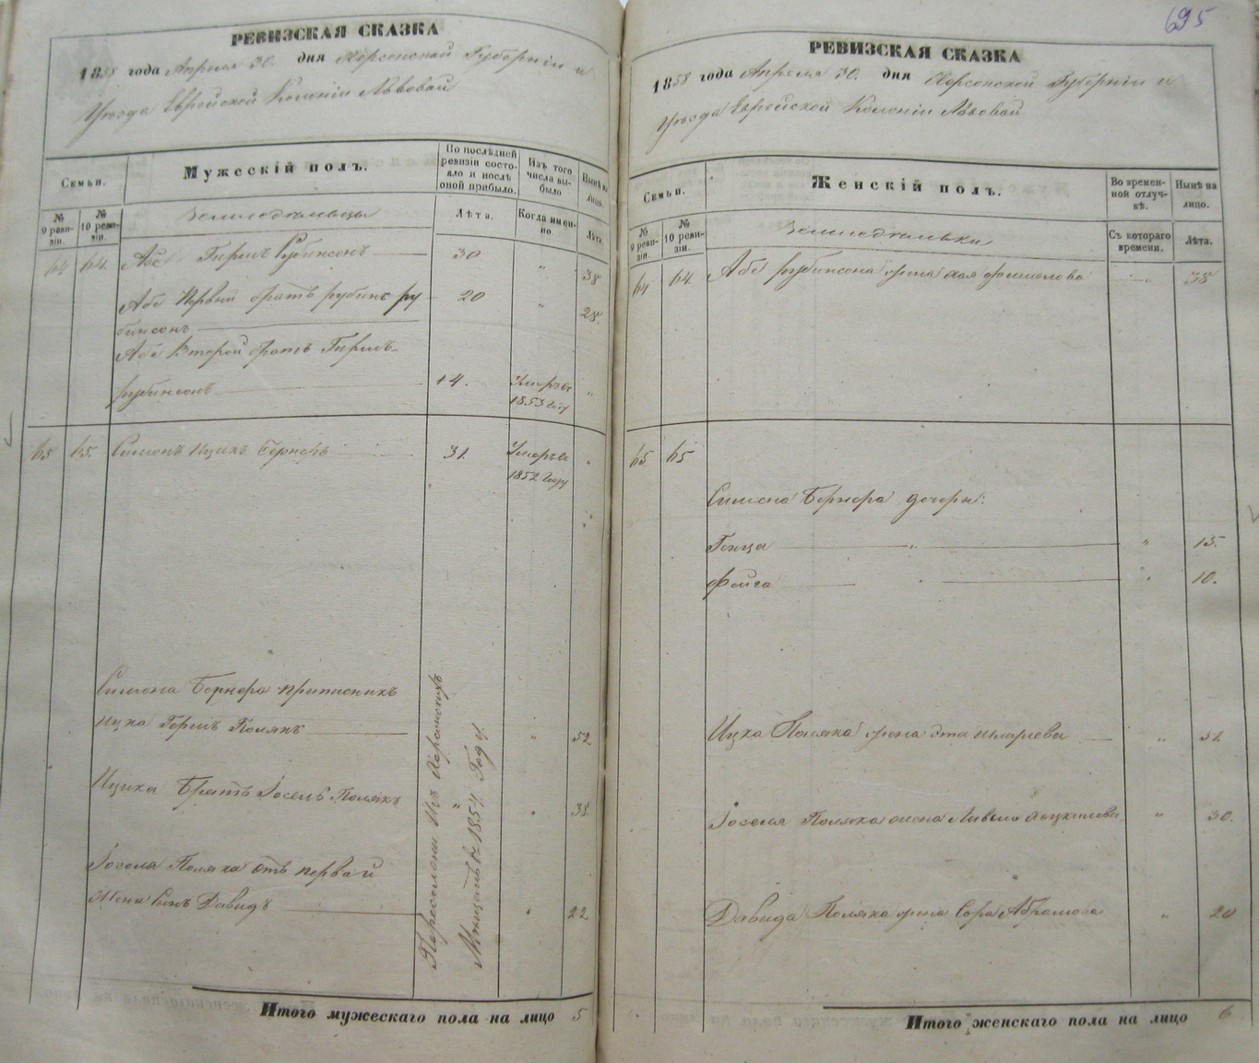 РЕВИЗСКАЯ СКАЗКА
1858 года Апреля 30. дня Херсонской Губернiи и
Уезда Еврейской Колонiи Львовой
Семьи.
Мужескiй полъ.
По послѣдней ревизiи состояло и послѣ оной прибыло.
Изъ того числа выбыло.
Нынѣ на лицо.
№ 9 ревизiи.
№ 10 ревизiи.
Земледельцы
Лѣта.
Когда именно
Лѣта.
64 64. Абе Гиршъ Рубинсонъ 30 " 38
Абе Первый братъ рубинс ру 20 " 28.
бинсонъ
Абе Второй братъ Гиршъ
рубинсонъ 14. Умеръ въ 1853 году "
65 65. Симонъ Ицикъ Бернеръ 31. Умеръ въ 1852 году "
Симона Бернера приписникъ
Ицка Гершъ Полякъ " 52
Ицика братъ Іосель Полякъ " " 38
Іоселя Поляка отъ первай
жена сынъ Давидъ " 22
Переселены изъ
1854 Года
Итого мужескаго пола на лицо 5
695
РЕВИЗСКАЯ СКАЗКА
1858 года Апреля 30. дня Херсонской Губернiи и
Уезда Еврейской Колонiи Львовой
Семьи.
Женскiй полъ.
Во временной отлучкѣ.
Нынѣ на лицо.
№ 9 ревизiи.
№ 10 ревизiи.
Земледельки
Съ котораго времени.
Лѣта.
64 64 Абе рубинсона жена Хая " 38
65 65
Симона Бернера дочери:
Генца " " 15.
Фейга " " 10.
Ицка Поляка жена Эта "
Іоселя Поляка жена " 30.
Давида Поляка жена Сора Абрамова " 20
Итого женскаго пола на лицо 6